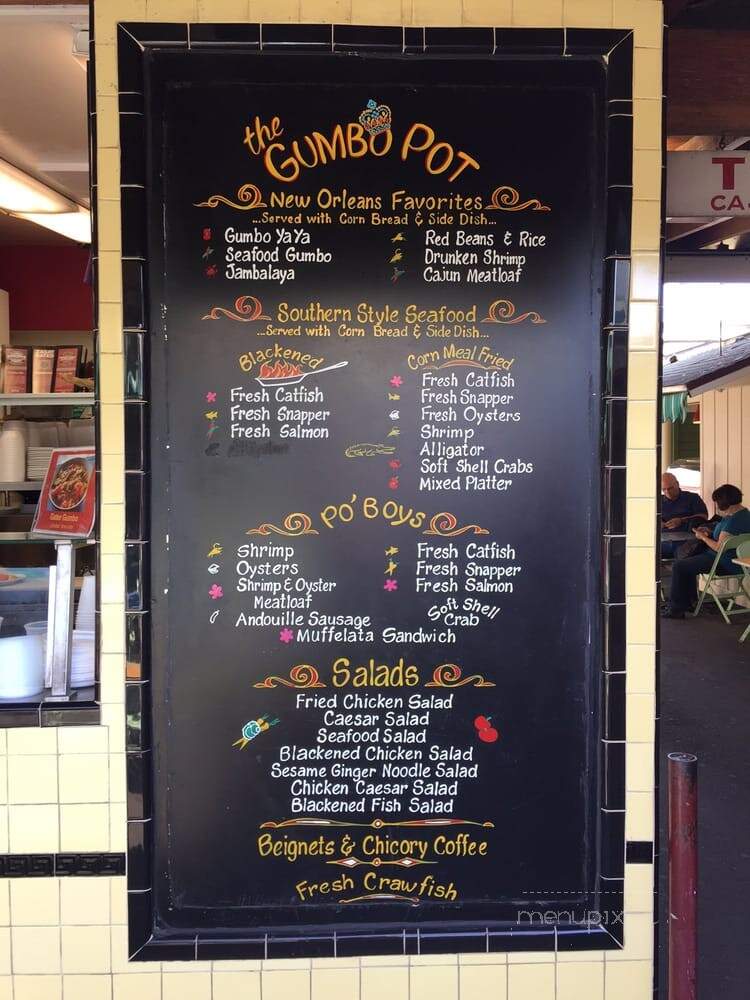 the
GUMBO POT
New Orleans Favorites
...Served with Corn Bread & Side Dish...
Gumbo YaYa
Seafood Gumbo
Jambalaya
Red Beans & Rice
Drunken Shrimp
Cajun Meatloaf
Southern Style Seafood
...Served with Corn Bread & Side Dish...
Blackened
Fresh Catfish
Fresh Snapper
Fresh Salmon
Corn Meal Fried
Fresh Catfish
Fresh Snapper
Fresh Oysters
Shrimp
Alligator
Soft Shell Crabs
Mixed Platter
Po'Boys
Shrimp
Oysters
Shrimp & Oyster
Meatloaf
Andouille Sausage
Fresh Catfish
Fresh Snapper
Fresh Salmon
Soft Shell
Crab
Muffelata Sandwich
Salads
Fried Chicken Salad
Caesar Salad
Seafood Salad
Blackened Chicken Salad
Sesame Ginger Noodle Salad
Chicken Caesar Salad
Blackened Fish Salad
Beignets & Chicory Coffee
Fresh Crawfish
menupix
T
CA
Gator Gumbo